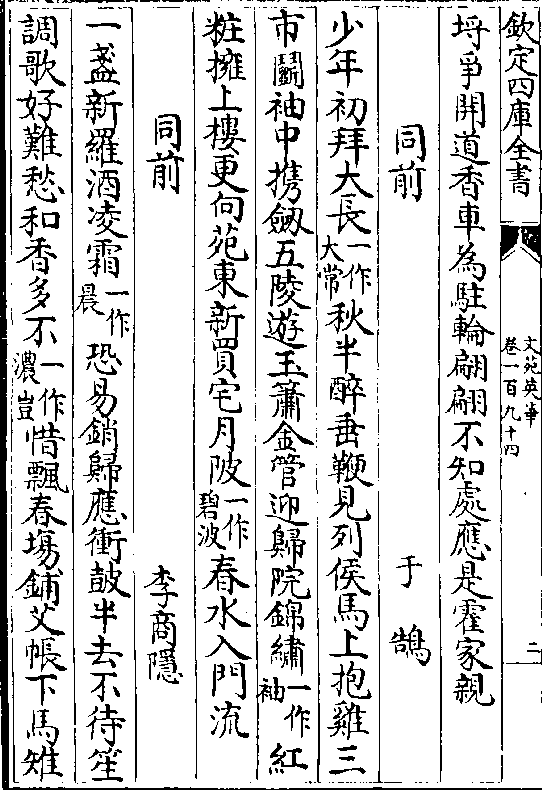 欽定四庫全書
文苑英華
卷一百九十四
二
埒爭開道香車為駐輪翩翩不知處應是霍家親
同前 于鵠
少年初拜大長一作大常秋半醉垂鞭見列侯馬上抱雞三
市鬭袖中携劒五陵遊玉簫金管迎歸院錦繡一作袖紅
粧擁上樓更向苑東新買宅月陂一作碧波春水入門流
同前 李商隱
一盞新羅酒凌霜一作晨恐易銷歸應衝鼓半去不待笙
調歌好難愁和香多不一作濃豈惜飄春塲鋪艾帳下馬雉